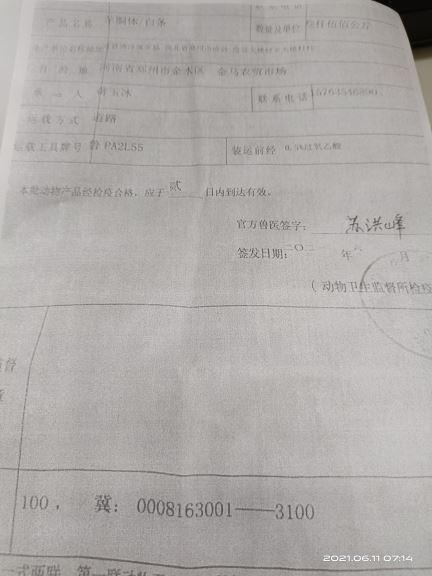 联系电话
产品名称 羊胴体/白条 数量及单位 叁仟伍佰公斤
目的地 河南省郑州市金水区 金马农贸市场
承运人 玉冰 联系电话
运载方式 道路
运载工具牌号 鲁PA2L55 装运前经 0.5%过氧乙酸
本批动物产品经检疫合格，应于 贰 日内到达有效。
官方兽医签字： 苏洪峰
签发日期：二〇二一 年 六 月
（动物卫生监督所检疫
监督
100， 冀： 0008163001——3100
一式两联，第一联
2021.06.11 07:14